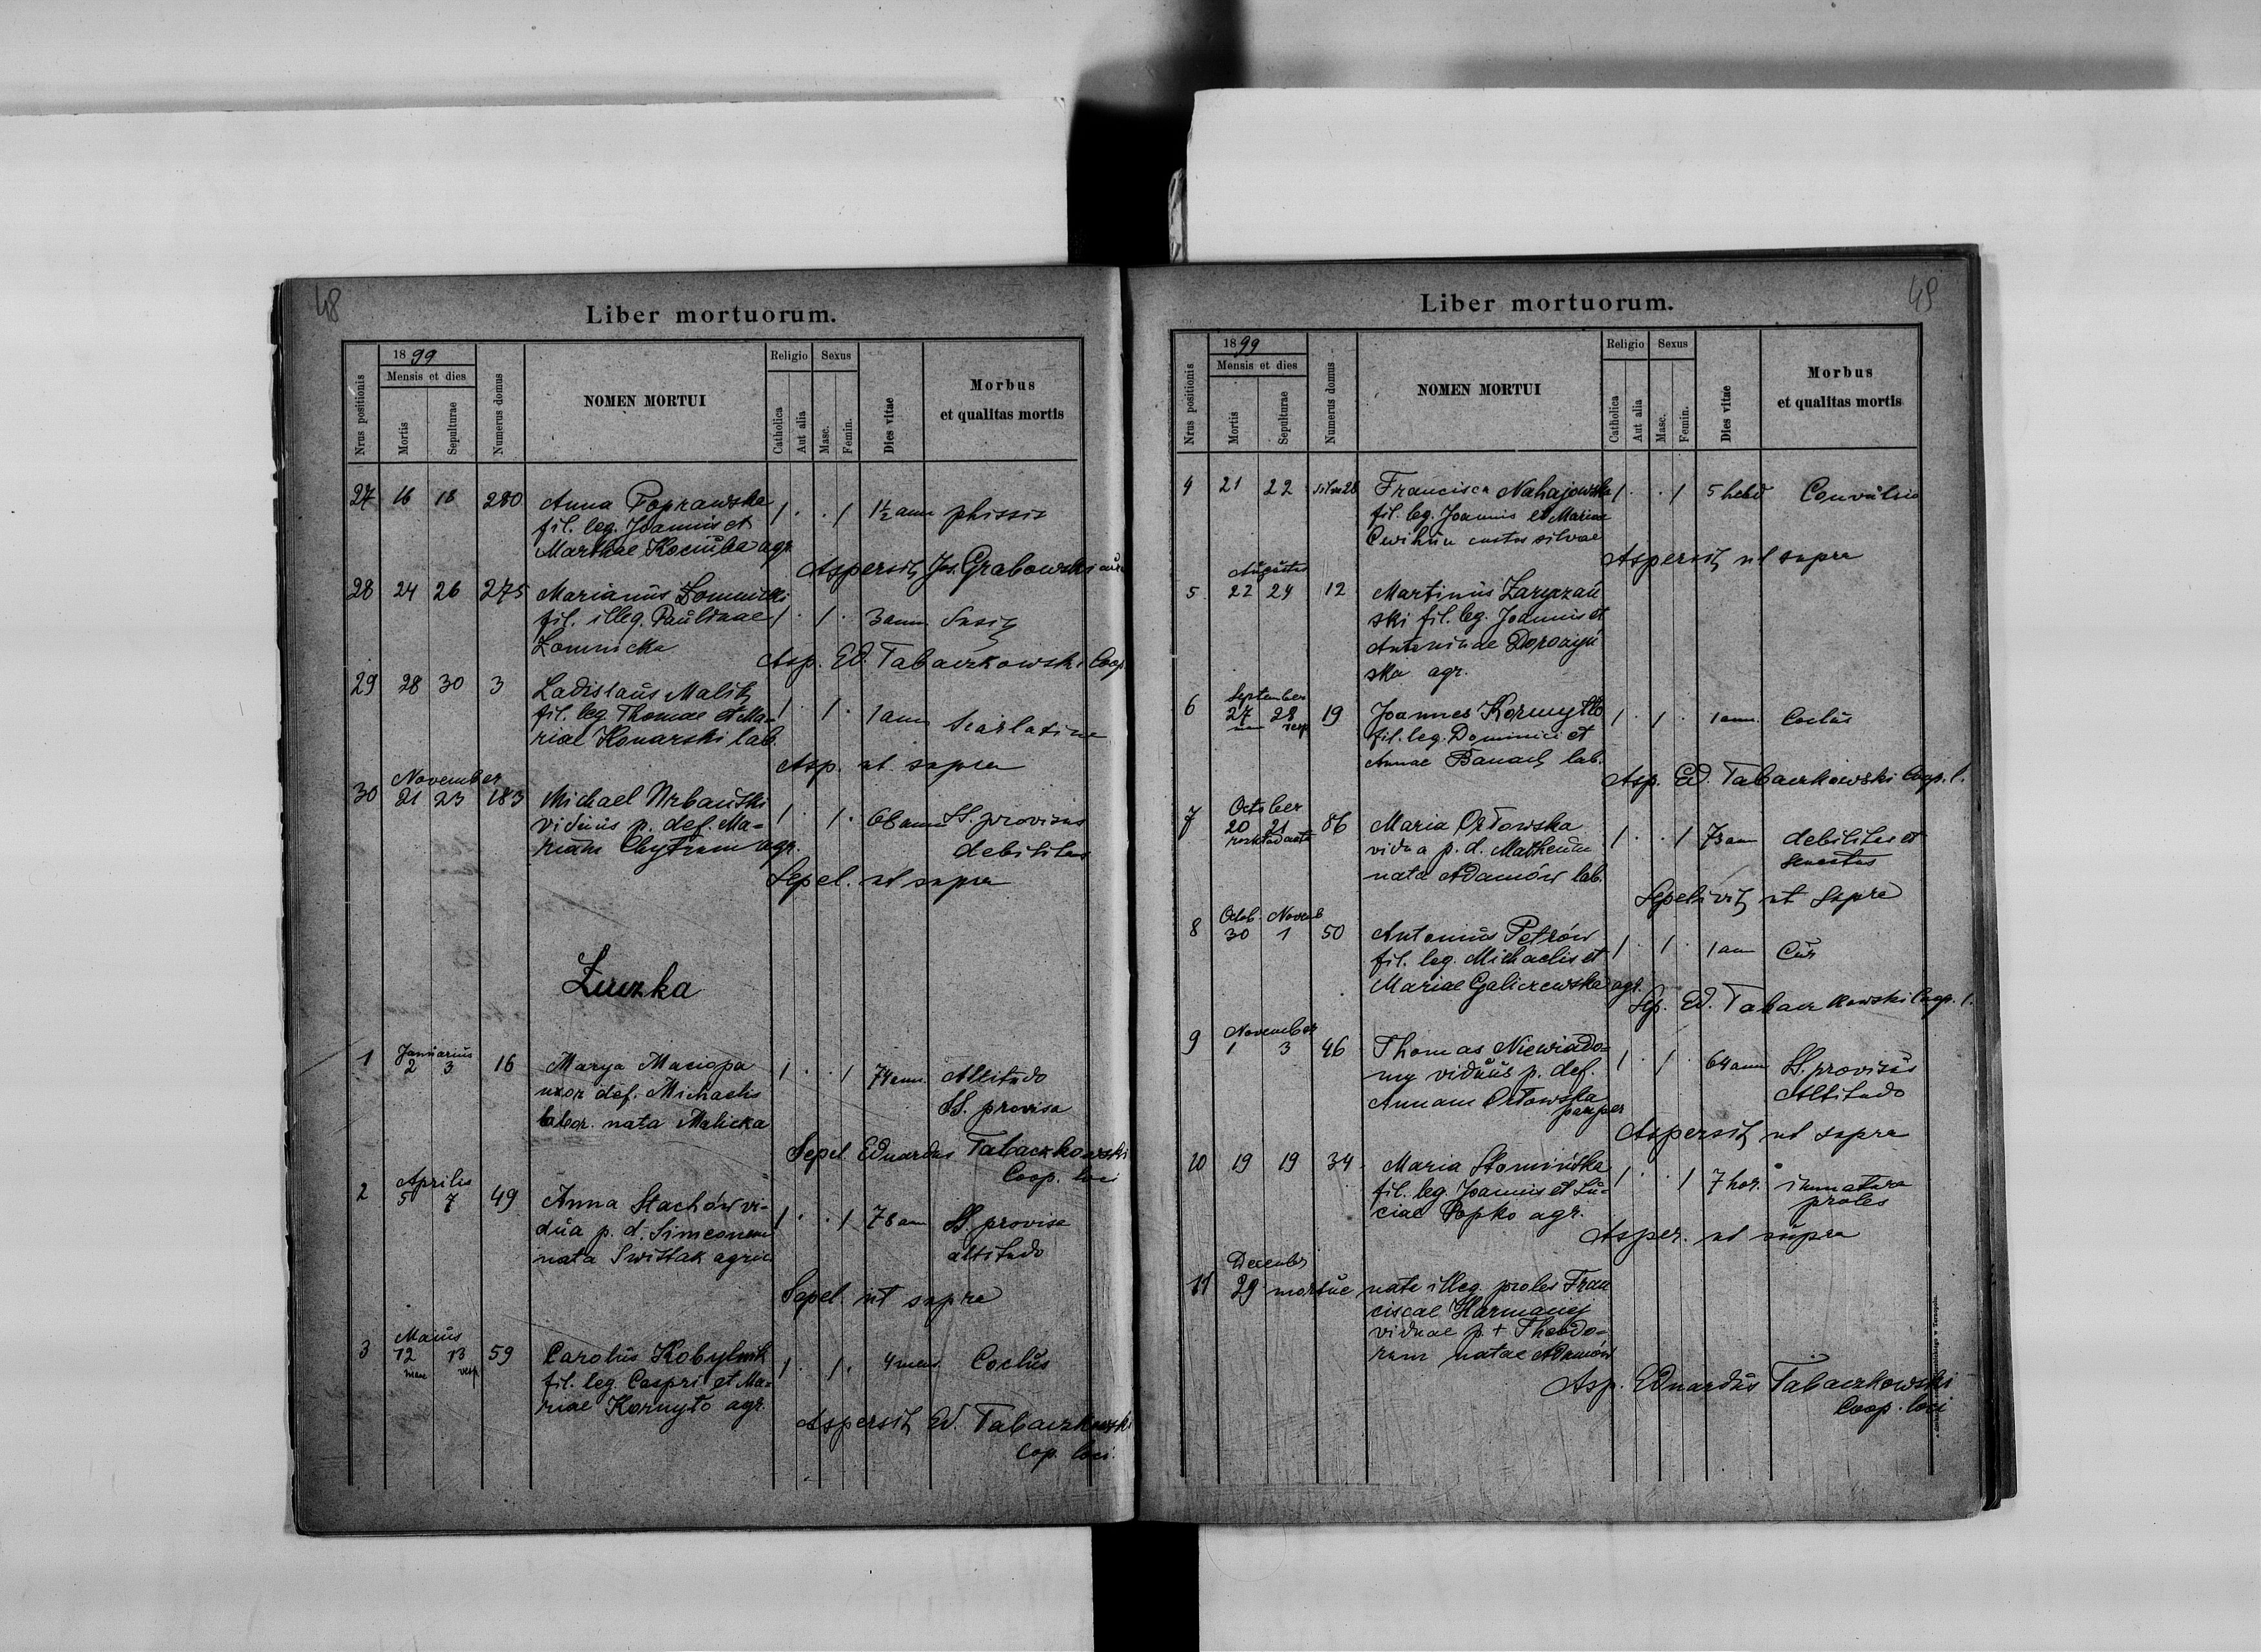 48
Liber mortuorum.
Nrus positionis
1899
Mensis et dies
Mortis
Sepulturae
Numerus domus
NOMEN MORTUI
Religio
Catholica
Aut alia
Sexus
Masc.
Femin.
Dies vitae
Morbus
et qualitas mortis
27 16 18 280 Anna Poprawska
fil. leg. Joannis et 1 . . 1 1½ ann phissis
Marthae Kociuba agr.
Aspersit Jos. Grabowski
28 24 26 275 Marianus Łomnicki
fil. illeg. Paulinae 1 . 1 . 3 ann
Łomnicka
Asp. Ed. Tabaczkowski Coop
29 28 30 3 Ladislaus Malik
fil. leg. Thomae et Ma- 1 . 1 . 1 ann Scarlatina
riae Konarski lab.
Asp. ut supra
November
30 21 23 183 Michael Urbański
viduus p. def. Ma- 1 . 1 . 68 ann SS. provisus
riam Chytram agr. debilitas
Sepel. ut supra
Łuczka
Januarius
1 2 3 16 Marya Maciopa 1 . . 1 74 ann. Altitudo
uxor def. Michaelis SS. provisa
labor. nata Malicka
Sepel Eduardus Tabaczkowski
Coop. loci
Aprilis
2 5 7 49 Anna Stachów vi-
dua p. d. Simeonem 1 . . 1 78 ann SS. provisa
nata Swistak agric. altitudo
Sepel. ut supra
Maius
3 12 13 59 Carolus Kobylnik
mane vesp fil. leg. Caspri et Ma- 1 . 1 . 4 mens. Coclus
riae Kornyło agr.
Aspersit Ed. Tabaczkowski
Cop. loci.
49
Liber mortuorum.
Nrus positionis
1899
Mensis et dies
Mortis
Sepulturae
Numerus domus
NOMEN MORTUI
Religio
Catholica
Aut alia
Sexus
Masc.
Femin.
Dies vitae
Morbus
et qualitas mortis
4 21 22 silva 28 Francisca Nahajowska 1 . . 1 5 hebd Convulsio
fil. leg. Joannis et Mariae
Cwihun custos silvae
Aspersit ut supra
Augustus
5. 22 24 12 Martinus Zaryzań
ski fil. leg. Joannis et
Antoninae Dorożyń
ska agr.
September
6 27 28 19 Joannes Kormyłło 1 . 1 . 1 ann. Coclus
vesp fil. leg. Dominici et
Annae Banach lab.
Asp. Ed. Tabaczkowski Coop. l.
October
7 20 21 86 Maria Orłowska
vidua p. d. Matheum 1 . . 1 73 ann debilitas et
nata Adamów lab. senectus
Sepelivit ut supra
Octob Novemb
8 30 1 50 Antonius Petrów
fil. leg. Michaelis et 1 . 1 . 1 ann Cur
Mariae Galiczewska agr.
Sep. Ed. Tabaczkowski Coop. l.
November
9 1 3 46 Thomas Niewiado-
my viduus p. def. 1 . 1 . 64 ann SS. provisus
Annam Orłowska Altitudo
pauper
Aspersit ut supra
10 19 19 34 Maria Słomińska
fil. leg. Joannis et Lu- 1 . . 1 7 hor. immatura
ciae Popko agr. proles
Asper. ut supra
December
11 29 mortue nata illeg. proles Fran
ciscae Harmaniej
viduae p. + Theodo-
rum natae Adamów
Asp. Eduardus Tabaczkowski
Coop. loci